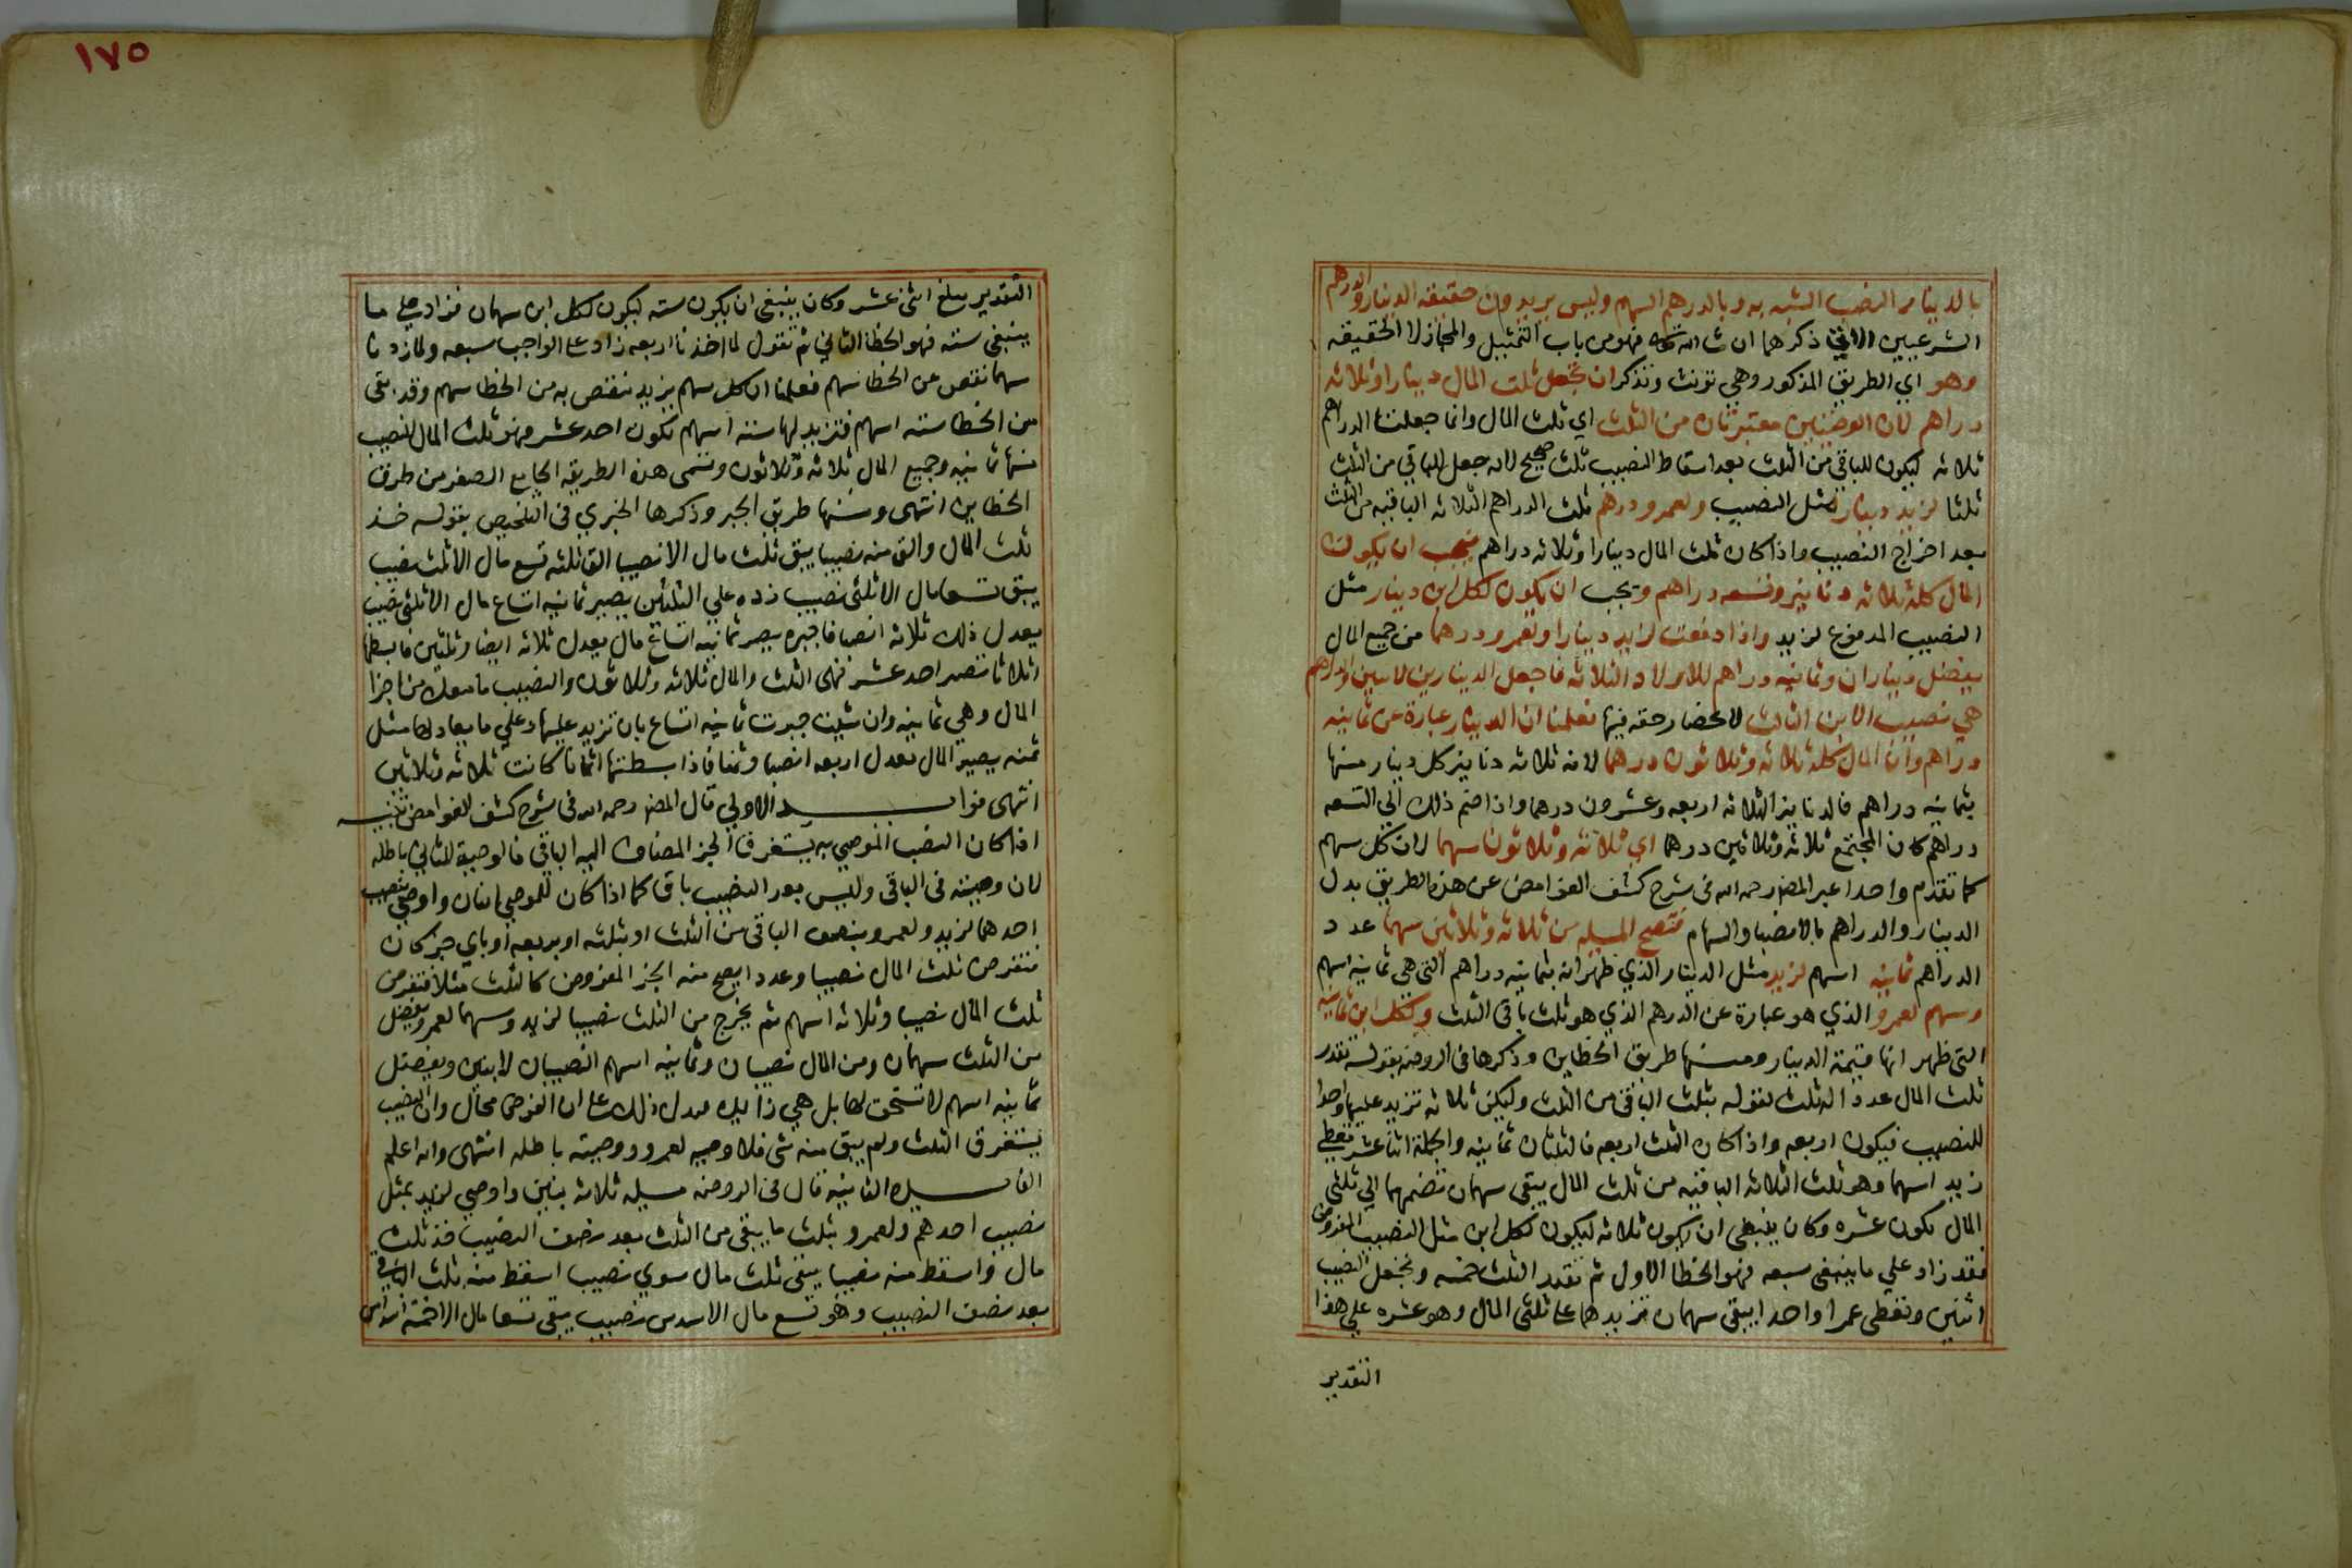 بالدينار النصيب الشبه به وبالدرهم السهم وليس يريدون حقيقة الدينار والدرهم
الشرعيين الاتي ذكرهما ان شا الله فهو من باب التمثيل والمجاز لا الحقيقه
وهو اي الطريق المذكور وهي تونث وتذكر ان تجعل ثلث المال دينارا وثلاثه
دراهم لان الوصيتين معتبرتان من الثلث اي ثلث المال وانما جعلت الدراهم
ثلاثه ليكون للباقي من الثلث بعد اسقاط النصيب ثلث صحيح لانه جعل للباقي من الثلث
ثلثا لزيد دينار مثل النصيب ولعمرو درهم ثلث الدراهم الثلاثه الباقيه من الثلث
بعد اخراج النصيب واذا كان ثلث المال دينارا وثلاثه دراهم فيجب ان يكون
المال كله ثلاثه دنانير وتسعه دراهم ويجب ان يكون لكل ابن دينار مثل
النصيب المدفوع لزيد واذا دفعت لزيد دينارا ولعمرو درهما من جميع المال
يفضل ديناران وثمانيه دراهم للاولاد الثلاثه فاجعل الدينارين لابنين والدراهم
هي نصيب الابن الثالث لانحصار حقه فيها فعلمنا ان الدينار عبارة عن ثمانيه
دراهم وان المال كله ثلاثه وثلاثون درهما لانه ثلاثه دنانير كل دينار منها
بثمانيه دراهم فالدنانير الثلاثه اربعه وعشرون درهما واذا ضم ذلك الي التسعه
دراهم كان المجتمع ثلاثه وثلاثين درهما اي ثلاثه وثلاثون سهما لان كل سهم
كما تقدم واحدا عبر المص رحمه الله في شرح كشف الغوامض عن هذه الطريق بدل
الدينار والدراهم بالانصبا والسهام فتصح المسيله من ثلاثه وثلاثين سهما عدد
الدراهم ثمانيه اسهم لزيد مثل الدينار الذي ظهر انه بثمانيه دراهم التي هي ثمانيه اسهم
وسهم لعمرو الذي هو عبارة عن الدرهم الذي هو ثلث باقي الثلث ولكل ابن ثمانيه
التي ظهر انها قيمة الدينار ومنها طريق الخطاين وذكرها في الروضه بقوله تقدر
ثلث المال عددا له ثلث لقوله بثلث الباقي من الثلث وليكن ثلاثه تزيد عليها واحدا
للنصيب فيكون اربعه واذا كان الثلث اربعه فالثلثان ثمانيه والجملة اثنا عشر تعطي
زيد اسهما وهو ثلث الثلاثه الباقيه من ثلث المال يبقى سهمان تضمهما الي ثلثي
المال تكون عشره وكان ينبغي ان يكون ثلاثه ليكون لكل ابن مثل النصيب المفروض
فقد زاد علي ما ينبغي سبعه فهو الخطا الاول ثم تقدر الثلث خمسه وتجعل النصيب
اثنين وتعطي عمرا واحدا يبقى سهمان تزيدهما علي ثلثي المال وهو عشره علي هذا
التقدير
١٧٥
التقدير يبلغ اثني عشر وكان ينبغي ان يكون سته ليكون لكل ابن سهمان فزاد علي ما
ينبغي سته فهو الخطا الثاني ثم تقول لما اخذنا اربعه زاد علي الواجب سبعه ولما زدنا
سهما نقص عن الخطا سهم فعلمنا ان كل سهم يزيد ينقص به من الخطا سهم وقد بقى
من الخطا سته اسهم فتزيد لها سته اسهم تكون احد عشر فهو ثلث المال النصيب
منها ثمانيه وجميع المال ثلاثه وثلاثون وتسمى هذه الطريقه الجامع الصغر من طرق
الخطاين انتهى ومنها طريق الجبر وذكرها الخبري في التلخيص بقوله خذ
ثلث المال والق منه نصيبا يبق ثلث مال الا نصيبا الق ثلثه تسع مال الا ثلث نصيب
يبق تسعا مال الا ثلثي نصيب زده علي الثلثين يصير ثمانيه اتساع مال الا ثلثي نصيب
يعدل ذلك ثلاثه انصبا فاجبره يصر ثمانيه اتساع مال يعدل ثلاثه انصبا وثلثين فابسطها
اثلاثا تصر احد عشر فهى الثلث والمال ثلاثه وثلاثون والنصيب ما معك من اجزا
المال وهي ثمانيه وان شيت جبرت ثمانيه اتساع بان تزيد عليها وعلي ما يعادلها مثل
ثمنه يصير المال يعدل اربعه انصبا وثمنا فاذا بسطتها اثمانا كانت ثلاثه وثلاثين
انتهى فوايد الاولي قال المص رحمه الله في شرح كشف الغوامض تنبيه
اذا كان النصيب الموصي به يستغرق الجز المضاف اليه الباقي فالوصية للثاني باطله
لان وصيته في الباقي وليس بعد النصيب باق كما اذا كان للموصي ابنان واوصي بنصيب
احدهما لزيد ولعمرو بنصف الباقي من الثلث او بثلثه او بربعه او باي جز كان
فتفرض ثلث المال نصيبا وعددا يصح منه الجز المفروض كالثلث مثلا فتفرض
ثلث المال نصيبا وثلاثه اسهم ثم يخرج من الثلث نصيبا لزيد وسهما لعمرو يفضل
من الثلث سهمان ومن المال نصيبان وثمانيه اسهم النصيبان لابنين ويفضل
ثمانيه اسهم لا تستحق لها بل هي زايده فدل ذلك علي ان الفرض محال وان النصيب
يستغرق الثلث ولم يبق منه شي فلا وصيه لعمرو ووصيته باطله انتهى والله اعلم
الفايده الثانيه قال في الروضه مسيله ثلاثه بنين واوصي لزيد بمثل
نصيب احدهم ولعمرو بثلث ما يبقى من الثلث بعد نصف النصيب فخذ ثلث
مال واسقط منه نصيبا يبقى ثلث مال سوي نصيب اسقط منه ثلث الباقي
بعد نصف النصيب وهو تسع مال الا سدس نصيب يبقى تسعا مال الا خمسة اسداس